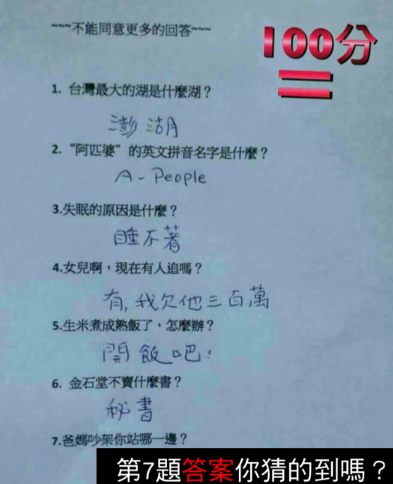 ~~~不能同意更多的回答~~~
100分
1. 台灣最大的湖是什麼湖？
澎湖
2. “阿匹婆”的英文拼音名字是什麼？
A-People
3.失眠的原因是什麼？
睡不著
4.女兒啊，現在有人追嗎？
有,我欠他三百萬
5.生米煮成熟飯了，怎麼辦？
開飯吧!
6. 金石堂不賣什麼書？
秘書
7.爸媽吵架你站哪一邊？
第7題答案你猜的到嗎？